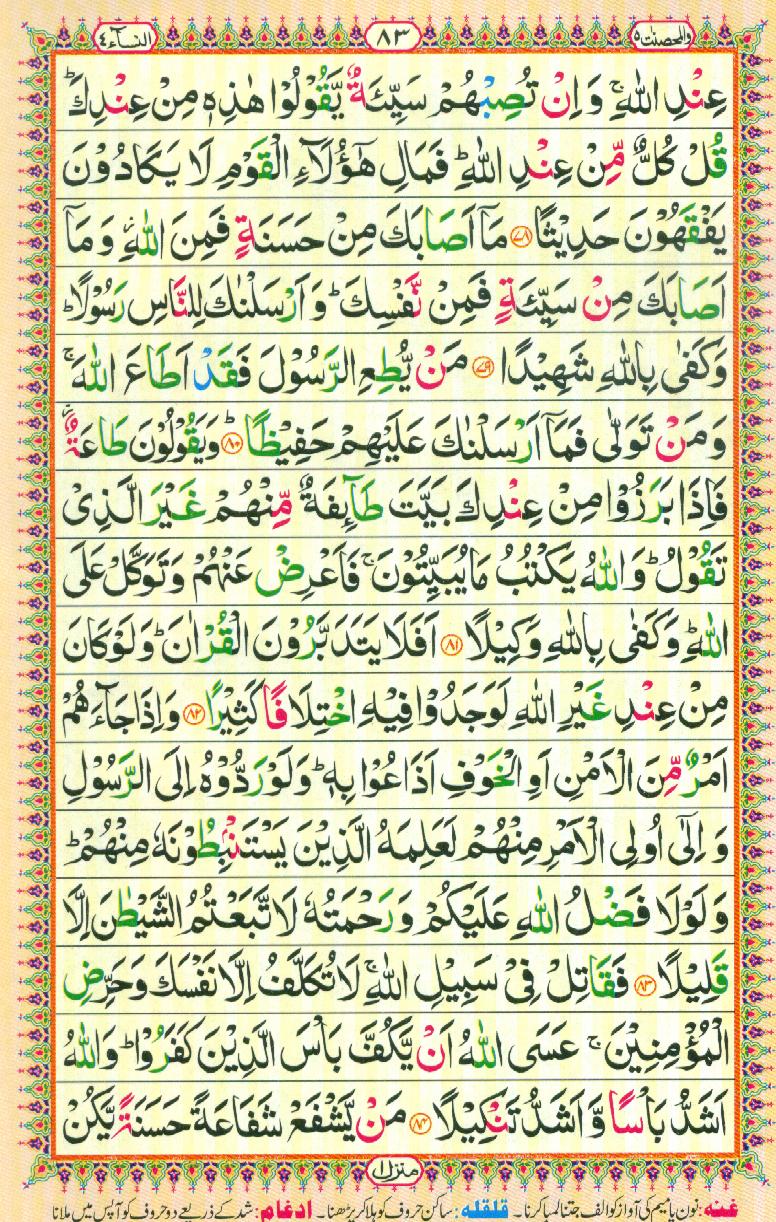 والمحصنت ۵ ۸۳ النسآء ۴
عِنۡدِ اللّٰهِ ۚ وَ اِنۡ تُصِبۡهُمۡ سَیِّئَةٌ یَّقُوۡلُوۡا هٰذِهٖ مِنۡ عِنۡدِكَ ؕ
قُلۡ كُلٌّ مِّنۡ عِنۡدِ اللّٰهِ ؕ فَمَالِ هٰۤؤُلَآءِ الۡقَوۡمِ لَا یَكَادُوۡنَ
یَفۡقَهُوۡنَ حَدِیۡثًا ﴿۷۸﴾ مَاۤ اَصَابَكَ مِنۡ حَسَنَةٍ فَمِنَ اللّٰهِ ۫ وَ مَاۤ
اَصَابَكَ مِنۡ سَیِّئَةٍ فَمِنۡ نَّفۡسِكَ ؕ وَ اَرۡسَلۡنٰكَ لِلنَّاسِ رَسُوۡلًا ؕ
وَكَفٰی بِاللّٰهِ شَهِیۡدًا ﴿۷۹﴾ مَنۡ یُّطِعِ الرَّسُوۡلَ فَقَدۡ اَطَاعَ اللّٰهَ ۚ
وَمَنۡ تَوَلّٰی فَمَاۤ اَرۡسَلۡنٰكَ عَلَیۡهِمۡ حَفِیۡظًا ﴿۸۰﴾ؕ وَیَقُوۡلُوۡنَ طَاعَةٌ ۫
فَاِذَا بَرَزُوۡا مِنۡ عِنۡدِكَ بَیَّتَ طَآئِفَةٌ مِّنۡهُمۡ غَیۡرَ الَّذِیۡ
تَقُوۡلُ ؕ وَاللّٰهُ یَكۡتُبُ مَا یُبَیِّتُوۡنَ ۚ فَاَعۡرِضۡ عَنۡهُمۡ وَتَوَكَّلۡ عَلَی
اللّٰهِ ؕ وَكَفٰی بِاللّٰهِ وَكِیۡلًا ﴿۸۱﴾ اَفَلَا یَتَدَبَّرُوۡنَ الۡقُرۡاٰنَ ؕ وَلَوۡ كَانَ
مِنۡ عِنۡدِ غَیۡرِ اللّٰهِ لَوَجَدُوۡا فِیۡهِ اخۡتِلَافًا كَثِیۡرًا ﴿۸۲﴾ وَاِذَا جَآءَهُمۡ
اَمۡرٌ مِّنَ الۡاَمۡنِ اَوِ الۡخَوۡفِ اَذَاعُوۡا بِهٖ ؕ وَلَوۡ رَدُّوۡهُ اِلَی الرَّسُوۡلِ
وَ اِلٰۤی اُولِی الۡاَمۡرِ مِنۡهُمۡ لَعَلِمَهُ الَّذِیۡنَ یَسۡتَنۡۢبِطُوۡنَهٗ مِنۡهُمۡ ؕ
وَلَوۡلَا فَضۡلُ اللّٰهِ عَلَیۡكُمۡ وَرَحۡمَتُهٗ لَاتَّبَعۡتُمُ الشَّیۡطٰنَ اِلَّا
قَلِیۡلًا ﴿۸۳﴾ فَقَاتِلۡ فِیۡ سَبِیۡلِ اللّٰهِ ۚ لَا تُكَلَّفُ اِلَّا نَفۡسَكَ وَحَرِّضِ
الۡمُؤۡمِنِیۡنَ ۚ عَسَی اللّٰهُ اَنۡ یَّكُفَّ بَاۡسَ الَّذِیۡنَ كَفَرُوۡا ؕ وَاللّٰهُ
اَشَدُّ بَاۡسًا وَّ اَشَدُّ تَنۡكِیۡلًا ﴿۸۴﴾ مَنۡ یَّشۡفَعۡ شَفَاعَةً حَسَنَةً یَّكُنۡ
منزل ۱
غنہ: نون یا میم کی آواز کو الف جتنا لمبا کرنا۔ قلقلہ: ساکن حروف کو ہلا کر پڑھنا۔ ادغام: شد کے ذریعے دو حروف کو آپس میں ملانا